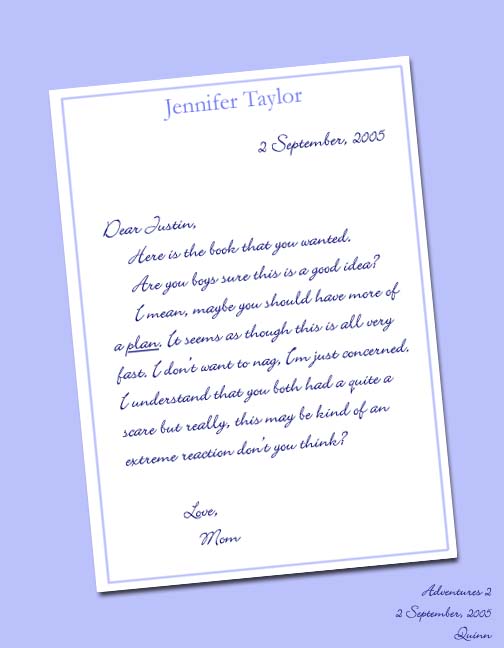 Jennifer Taylor
2 September, 2005
Dear Justin,
Here is the book that you wanted.
Are you boys sure this is a good idea?
I mean, maybe you should have more of
a plan. It seems as though this is all very
fast. I don't want to nag, I'm just concerned.
I understand that you both had a quite a
scare but really, this may be kind of an
extreme reaction don't you think?
Love,
Mom
Adventures 2
2 September, 2005
Quinn